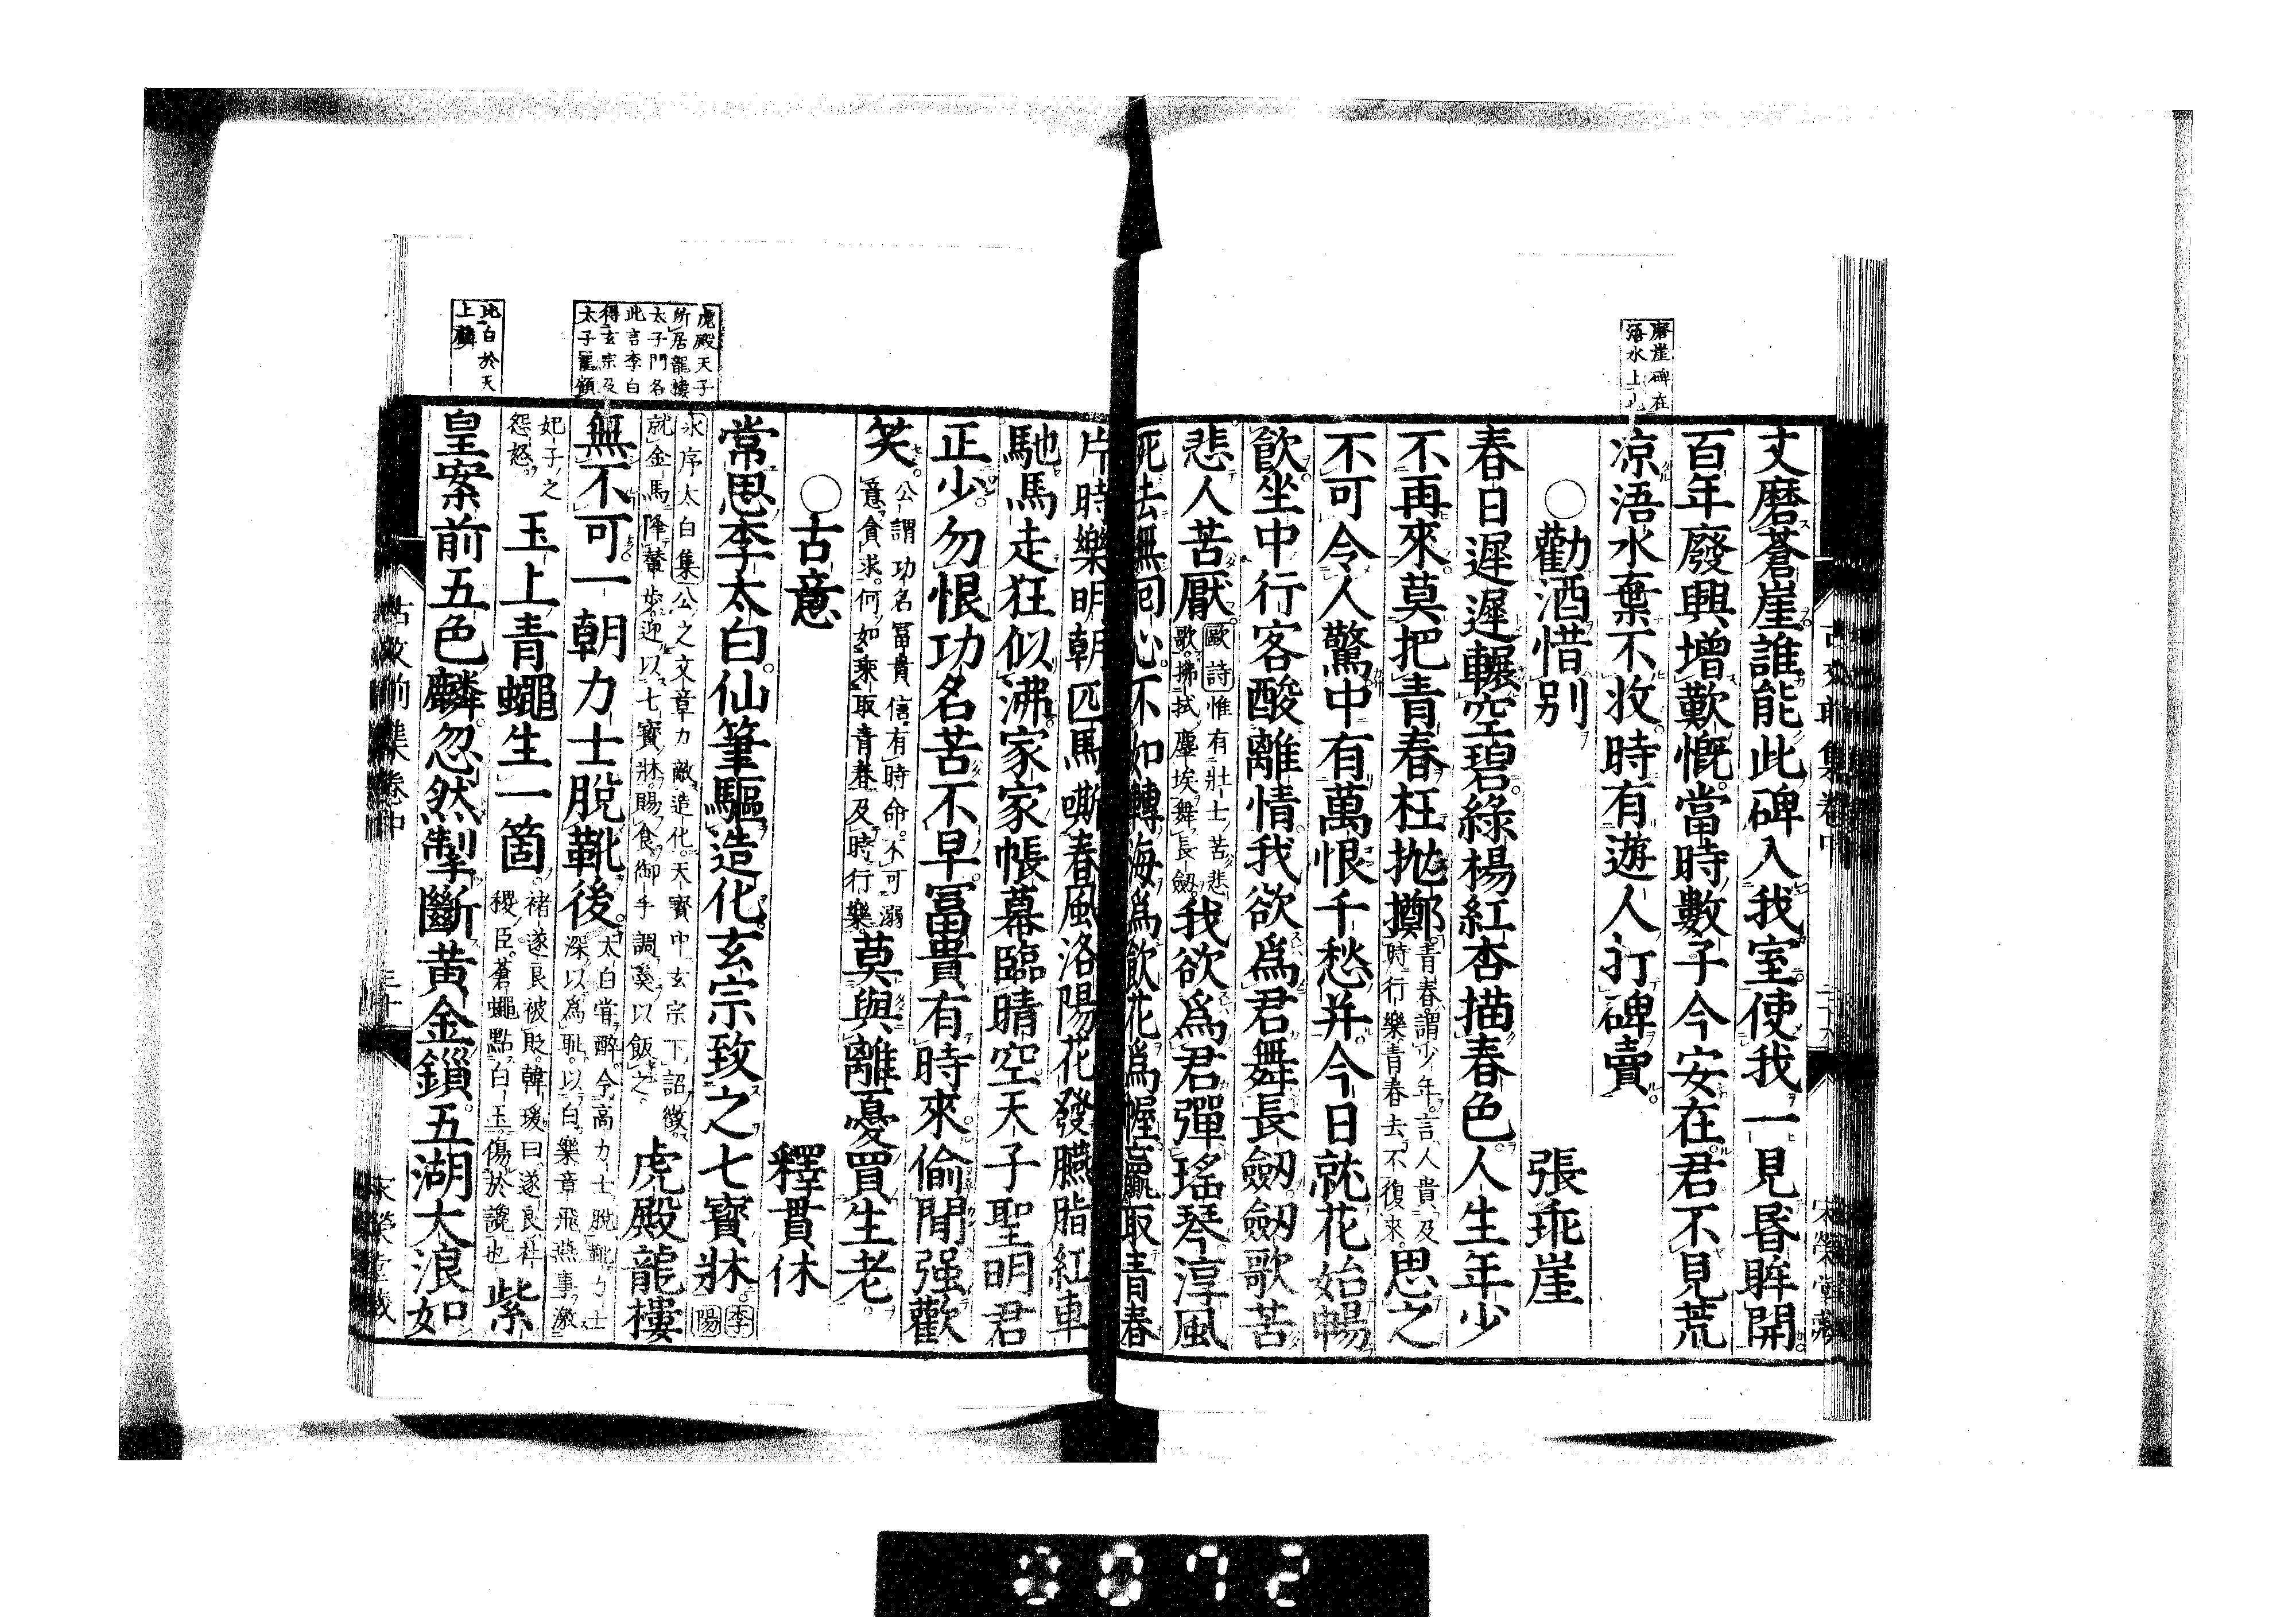 磨崖碑在
浯水上也
丈磨蒼崖誰能此碑入我室使我一見昏眸開
百年廢興增歎慨當時數子今安在君不見荒
凉浯水棄不收時有遊人打碑賣
○勸酒惜別　張乖崖
春日遲遲輾空碧綠楊紅杏描春色人生年少
不再來莫把青春枉抛擲青春謂少年言人貴及時行樂青春去不復來思之
不可令人驚中有萬恨千愁并今日就花始暢
飲坐中行客酸離情我欲爲君舞長劒劒歌苦
悲人苦厭歐詩惟有壯士苦悲歌拂拭塵埃舞長劒我欲爲君彈瑤琴淳風
死去無回心不如轉海爲飲花爲幄贏取青春
片時樂明朝匹馬嘶春風洛陽花發臙脂紅車
馳馬走狂似沸家家帳幕臨晴空天子聖明君
正少勿恨功名苦不早冨貴有時來偷閒强歡
笑公謂功名冨貴信有時命不可溺意貪求何如乘取青春及時行樂莫與離憂買生老
○古意　釋貫休
虎殿天子
所居龍樓
太子門名
此言李白
得玄宗及
太子寵顧
常思李太白仙筆驅造化玄宗致之七寳牀李陽
氷序太白集公之文章力敵造化天寳中玄宗下詔徵就金馬降輦步迎以七寳牀賜食御手調羹以飯之虎殿龍樓
無不可一朝力士脫靴後太白嘗醉令高力士脫靴力士深以爲恥以白樂章飛燕事激
妃子之怨怒玉上青蠅生一箇褚遂良被貶韓瑗曰遂良社稷臣蒼蠅點白玉傷於讒也紫
此白於天
上麟
皇案前五色麟忽然掣斷黃金鎖五湖大浪如
古文前集卷中